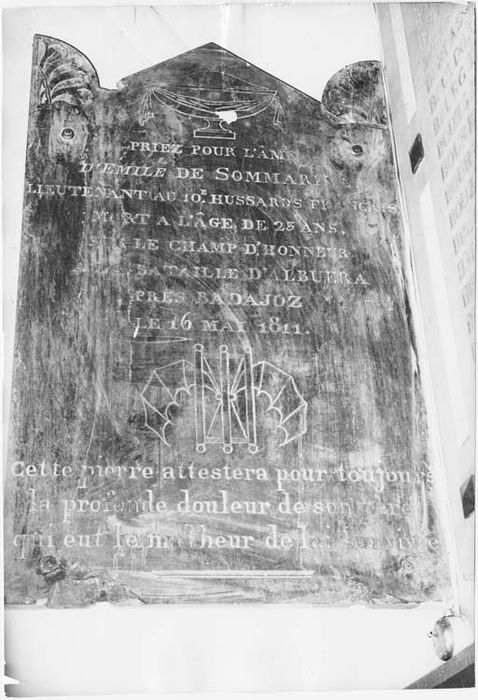 PRIEZ POUR L'ÂM
D'ÉMILE DE SOMMAR
LIEUTENANT AU 10.E HUSSARDS FRANÇAIS
MORT A L'ÂGE DE 25 ANS.
SUR LE CHAMP D'HONNEUR
BATAILLE D'ALBUERA
PRÈS BADAJOZ
LE 16 MAI 1811.
Cette pierre attestera pour toujours
la profonde douleur de son père
qui eut le malheur de lui survivre